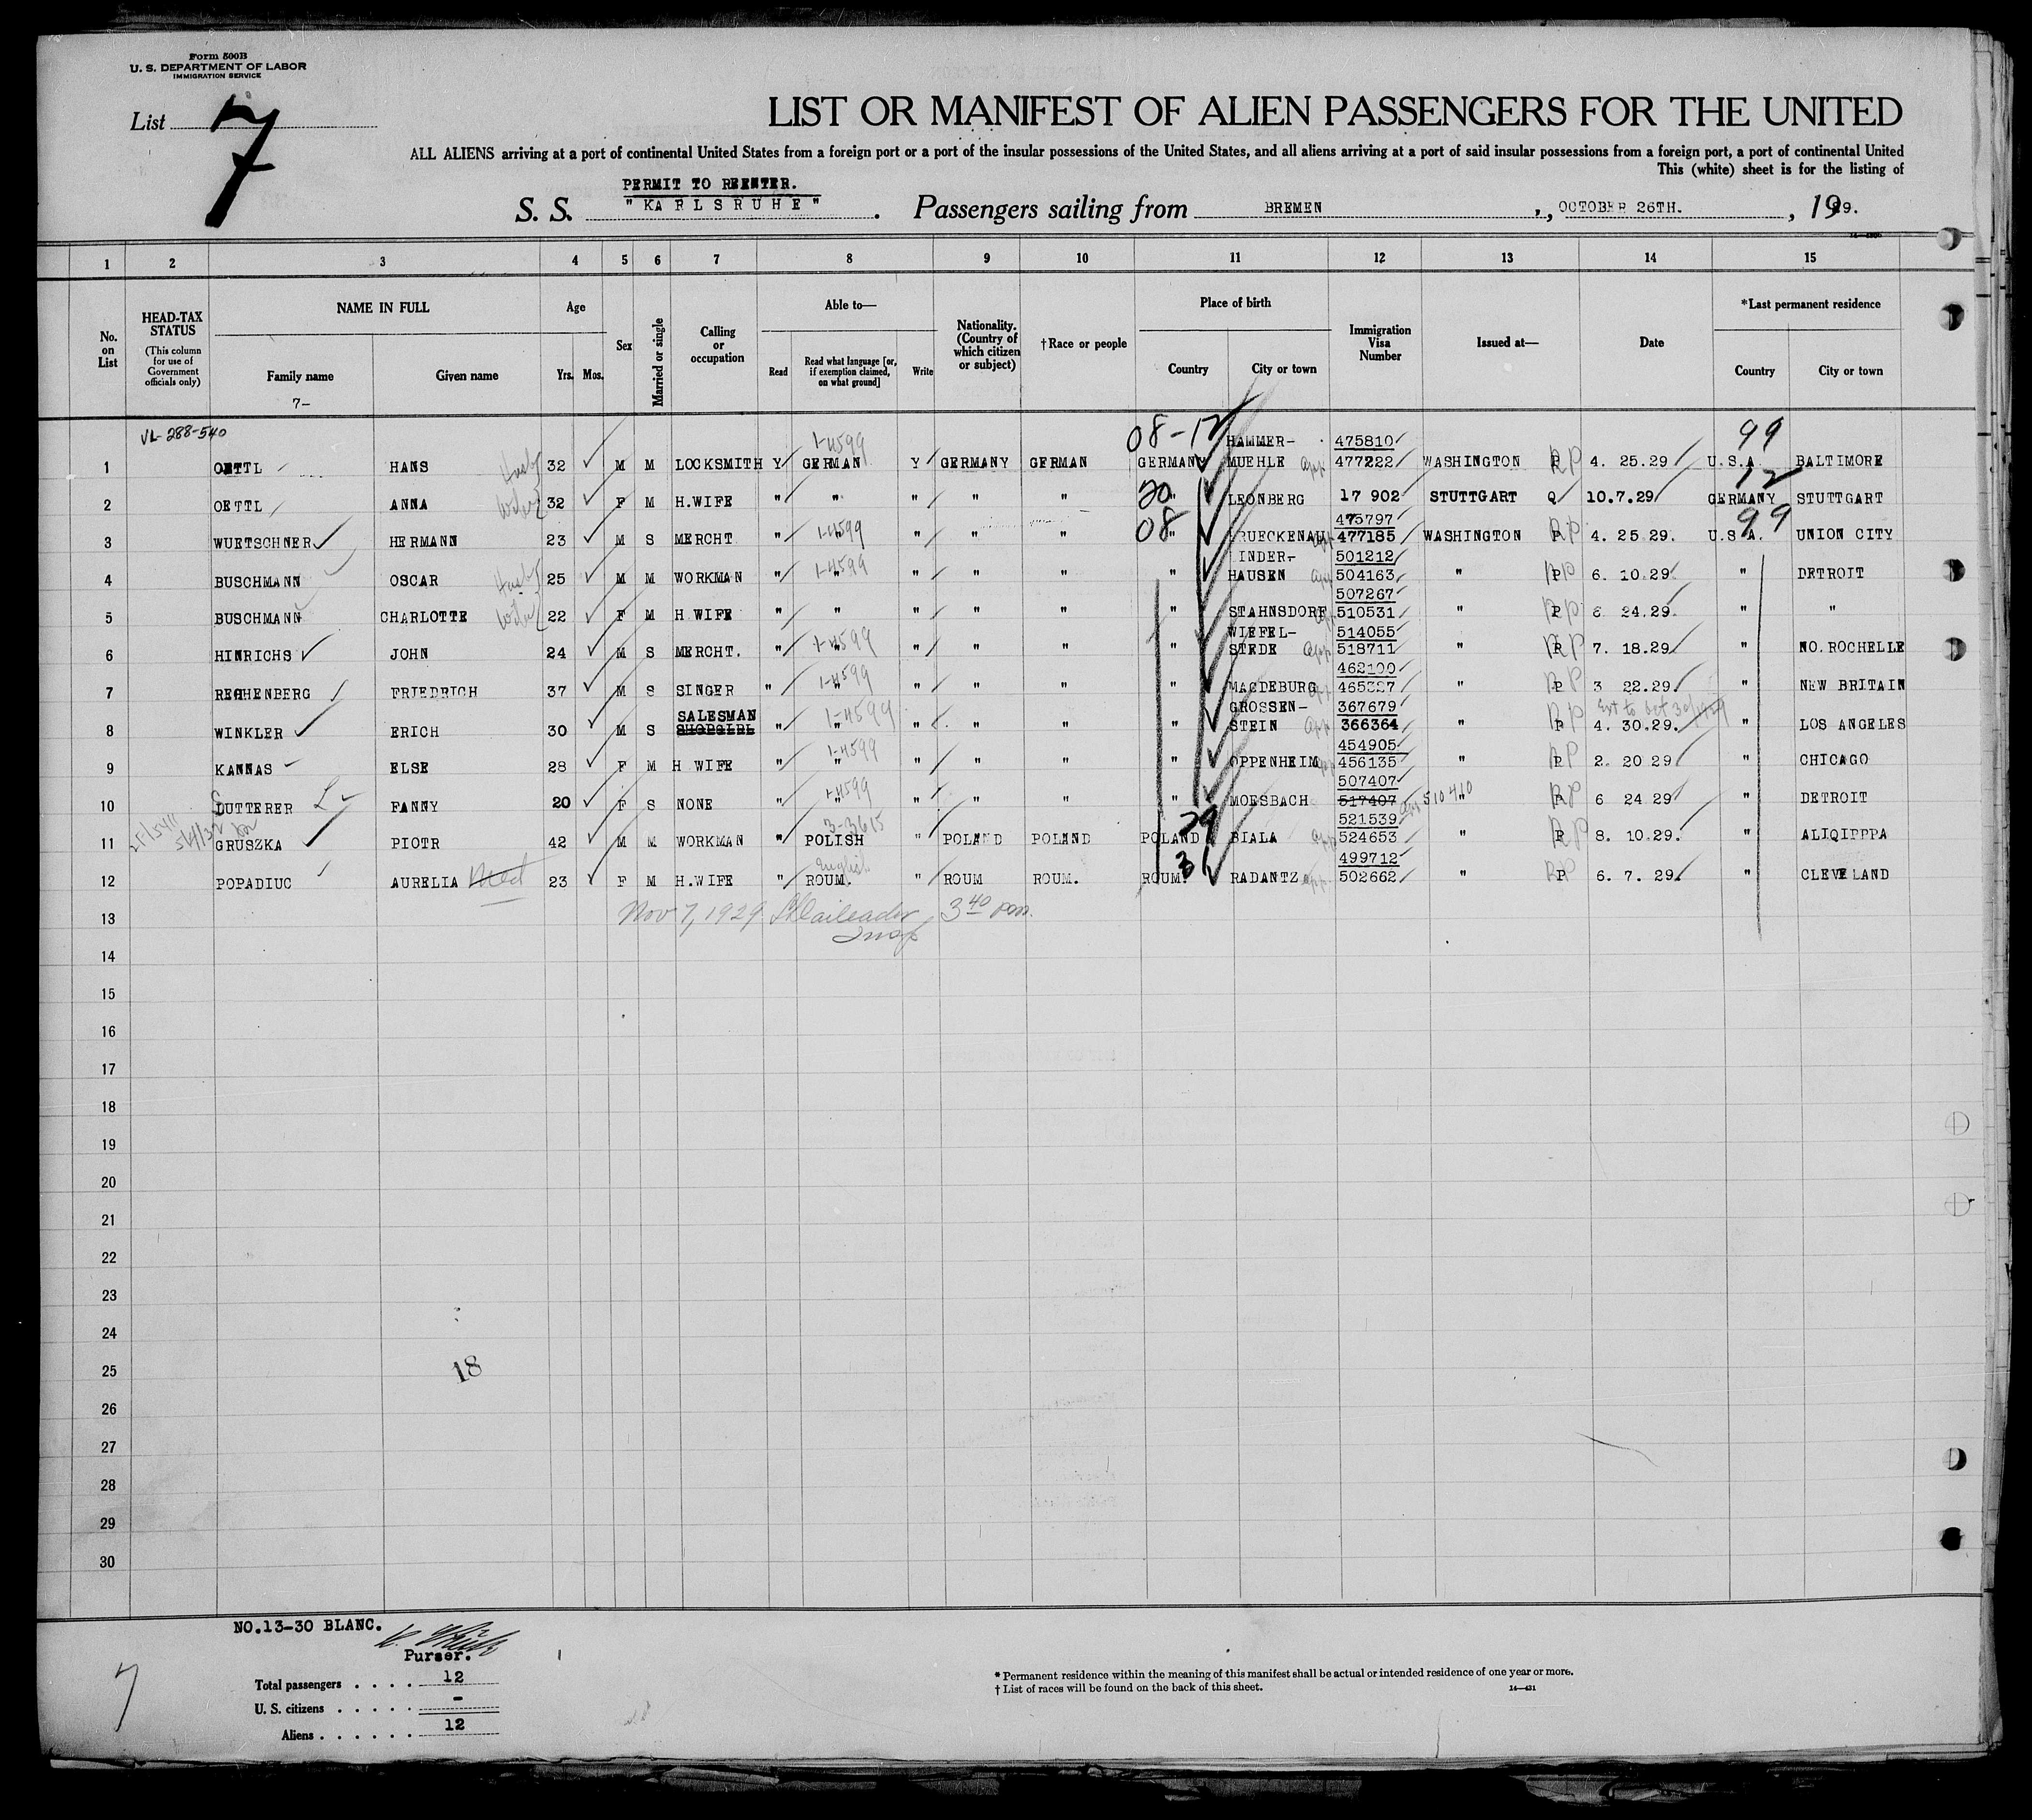 Form 500B
U. S. DEPARTMENT OF LABOR
IMMIGRATION SERVICE
List 7
LIST OR MANIFEST OF ALIEN PASSENGERS FOR THE UNITED
ALL ALIENS arriving at a port of continental United States from a foreign port or a port of the insular possessions of the United States, and all aliens arriving at a port of said insular possessions from a foreign port, a port of continental United
This (white) sheet is for the listing of
PERMIT TO REENTER.
S. S. "KARLSRUHE". Passengers sailing from BREMEN, OCTOBER 26TH., 1929.
1 2 3 4 5 6 7 8 9 10 11 12 13 14 15
No. on List
HEAD-TAX STATUS
(This column for use of Government officials only)
NAME IN FULL
Family name
Given name
7-
Age
Yrs. Mos.
Sex
Married or single
Calling or occupation
Able to—
Read
Read what language [or, if exemption claimed, on what ground]
Write
Nationality. (Country of which citizen or subject)
†Race or people
Place of birth
Country
City or town
Immigration Visa Number
Issued at—
Date
*Last permanent residence
Country
City or town
VL-288-540 1-4599 08-12 HAMMER- 475810 99
1 OETTL HANS Husb 32 M M LOCKSMITH Y GERMAN Y GERMANY GERMAN GERMANY MUEHLE app 477222 WASHINGTON P RP 4. 25.29 U.S.A. BALTIMORE
20 12
2 OETTL ANNA Wife 32 F M H.WIFE " " " " " " LEONBERG 17 902 STUTTGART Q 10.7.29 GERMANY STUTTGART
1-4599 08 475797 99
3 WUETSCHNER HERMANN 23 M S MERCHT " " " " " " BRUECKENAU 477185 WASHINGTON P RP 4. 25 29. U.S.A. UNION CITY
1-4599 LINDER- 501212
4 BUSCHMANN OSCAR Husb 25 M M WORKMAN " " " " " " HAUSEN app 504163 " P RP 6. 10.29 " DETROIT
507267
5 BUSCHMANN CHARLOTTE Wife 22 F M H WIFE " " " " " " STAHNSDORF 510531 " P RP 6 24.29. " "
1-4599 WIEFEL- 514055
6 HINRICHS JOHN 24 M S MERCHT. " " " " " " STEDE app 518711 " P RP 7. 18.29 " NO.ROCHELLE
1-4599 462100
7 FRIEDRICH 37 M S SINGER " " " " " " MAGDEBURG 465327 " P RP 3 22.29. " NEW BRITAIN
SALESMAN 1-4599 GROSSEN- 367679 Ext to Oct 30/1929
8 WINKLER ERICH 30 M S SHOPGIRL " " " " " " STEIN app 366364 " P RP 4. 30.29. " LOS ANGELES
1-4599 454905
9 KANNAS ELSE 28 F M H WIFE " " " " " " OPPENHEIM 456135 " P RP 2. 20 29 " CHICAGO
1-4599 507407
10 DUTTERER FANNY 20 F S NONE " " " " " " MOESBACH 517407 app 510410 " P RP 6 24 29 " DETROIT
3-3615 29 521539
11 GRUSZKA PIOTR 42 M M WORKMAN " POLISH " POLAND POLAND POLAND BIALA app 524653 " P RP 8. 10.29. " ALIQIPPPA
English 31 499712
12 POPADIUC AURELIA Med 23 F M H.WIFE " ROUM. " ROUM ROUM. ROUM. RADANTZ app. 502662 " P RP 6. 7. 29. " CLEVELAND
13 Nov 7, 1929 Insp 3 40 pm.
14
15
16
17
18
19
20
21
22
23
24
25 18
26
27
28
29
30
NO.13-30 BLANC.
Purser.
7
Total passengers . . . . 12
U. S. citizens . . . . . -
Aliens . . . . . . 12
* Permanent residence within the meaning of this manifest shall be actual or intended residence of one year or more.
† List of races will be found on the back of this sheet.
14—431